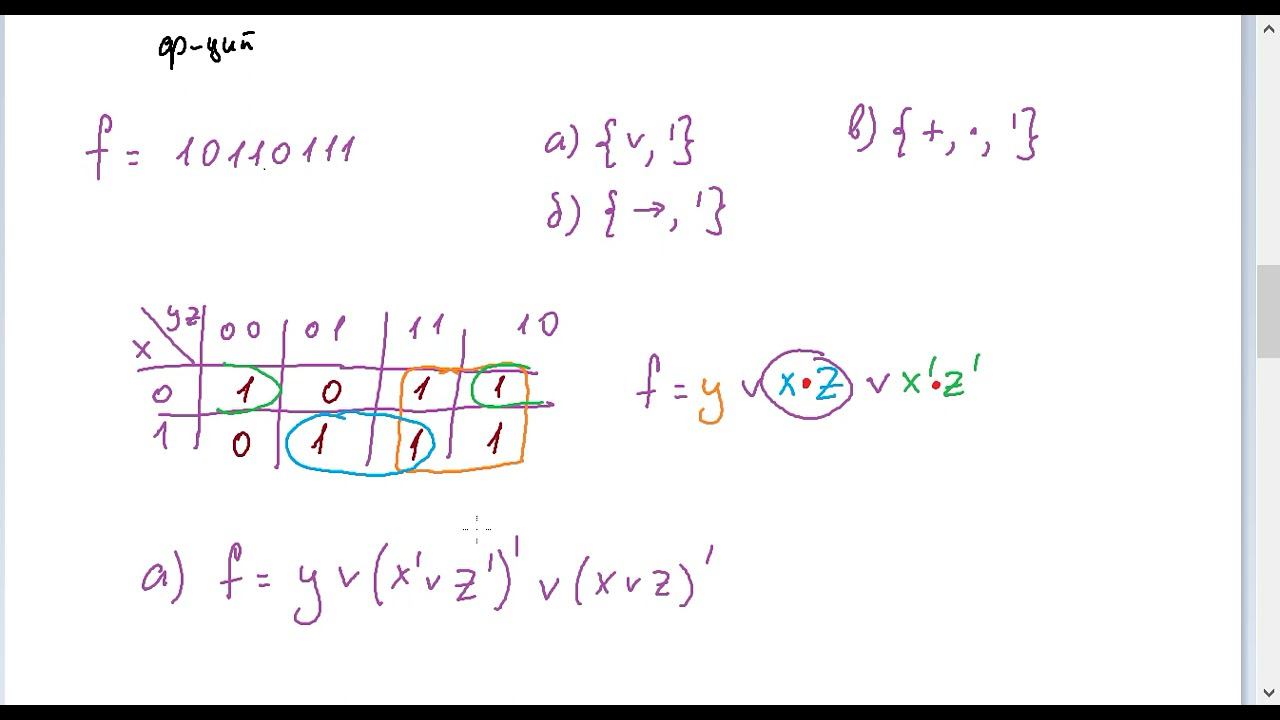 ф-ций
f = 10110111 а) {v, '} в) {+, ·, '}
б) {→, '}
x \ yz 00 01 11 10
0 1 0 1 1
1 0 1 1 1
f = y v x·z v x'·z'
а) f = y v (x' v z')' v (x v z)'